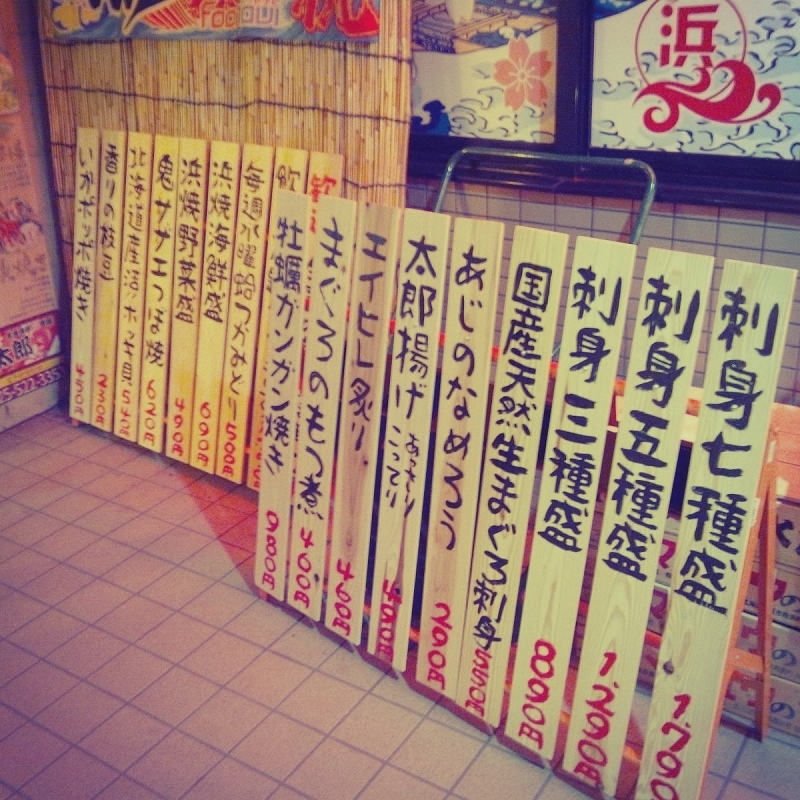 浜
刺身七種盛 1,790
刺身五種盛 1,290円
刺身三種盛 890円
国産天然生まぐろ刺身 550円
あじのなめろう 290円
太郎揚げ あっさり こってり 490円
エイヒレ炙り 400円
まぐろのもつ煮 400円
牡蠣ガンガン焼き 980円
毎週水曜 500円
浜焼海鮮盛 690円
浜焼野菜盛 490円
鬼サザエつぼ焼 620円
北海道産活ホッキ貝 540円
香りの枝豆 230円
いかポッポ焼き 450円
太郎